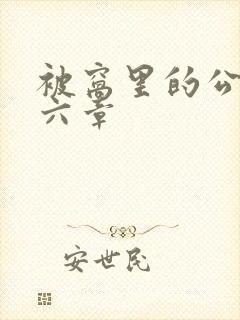 被窝里的公
六章
安世民